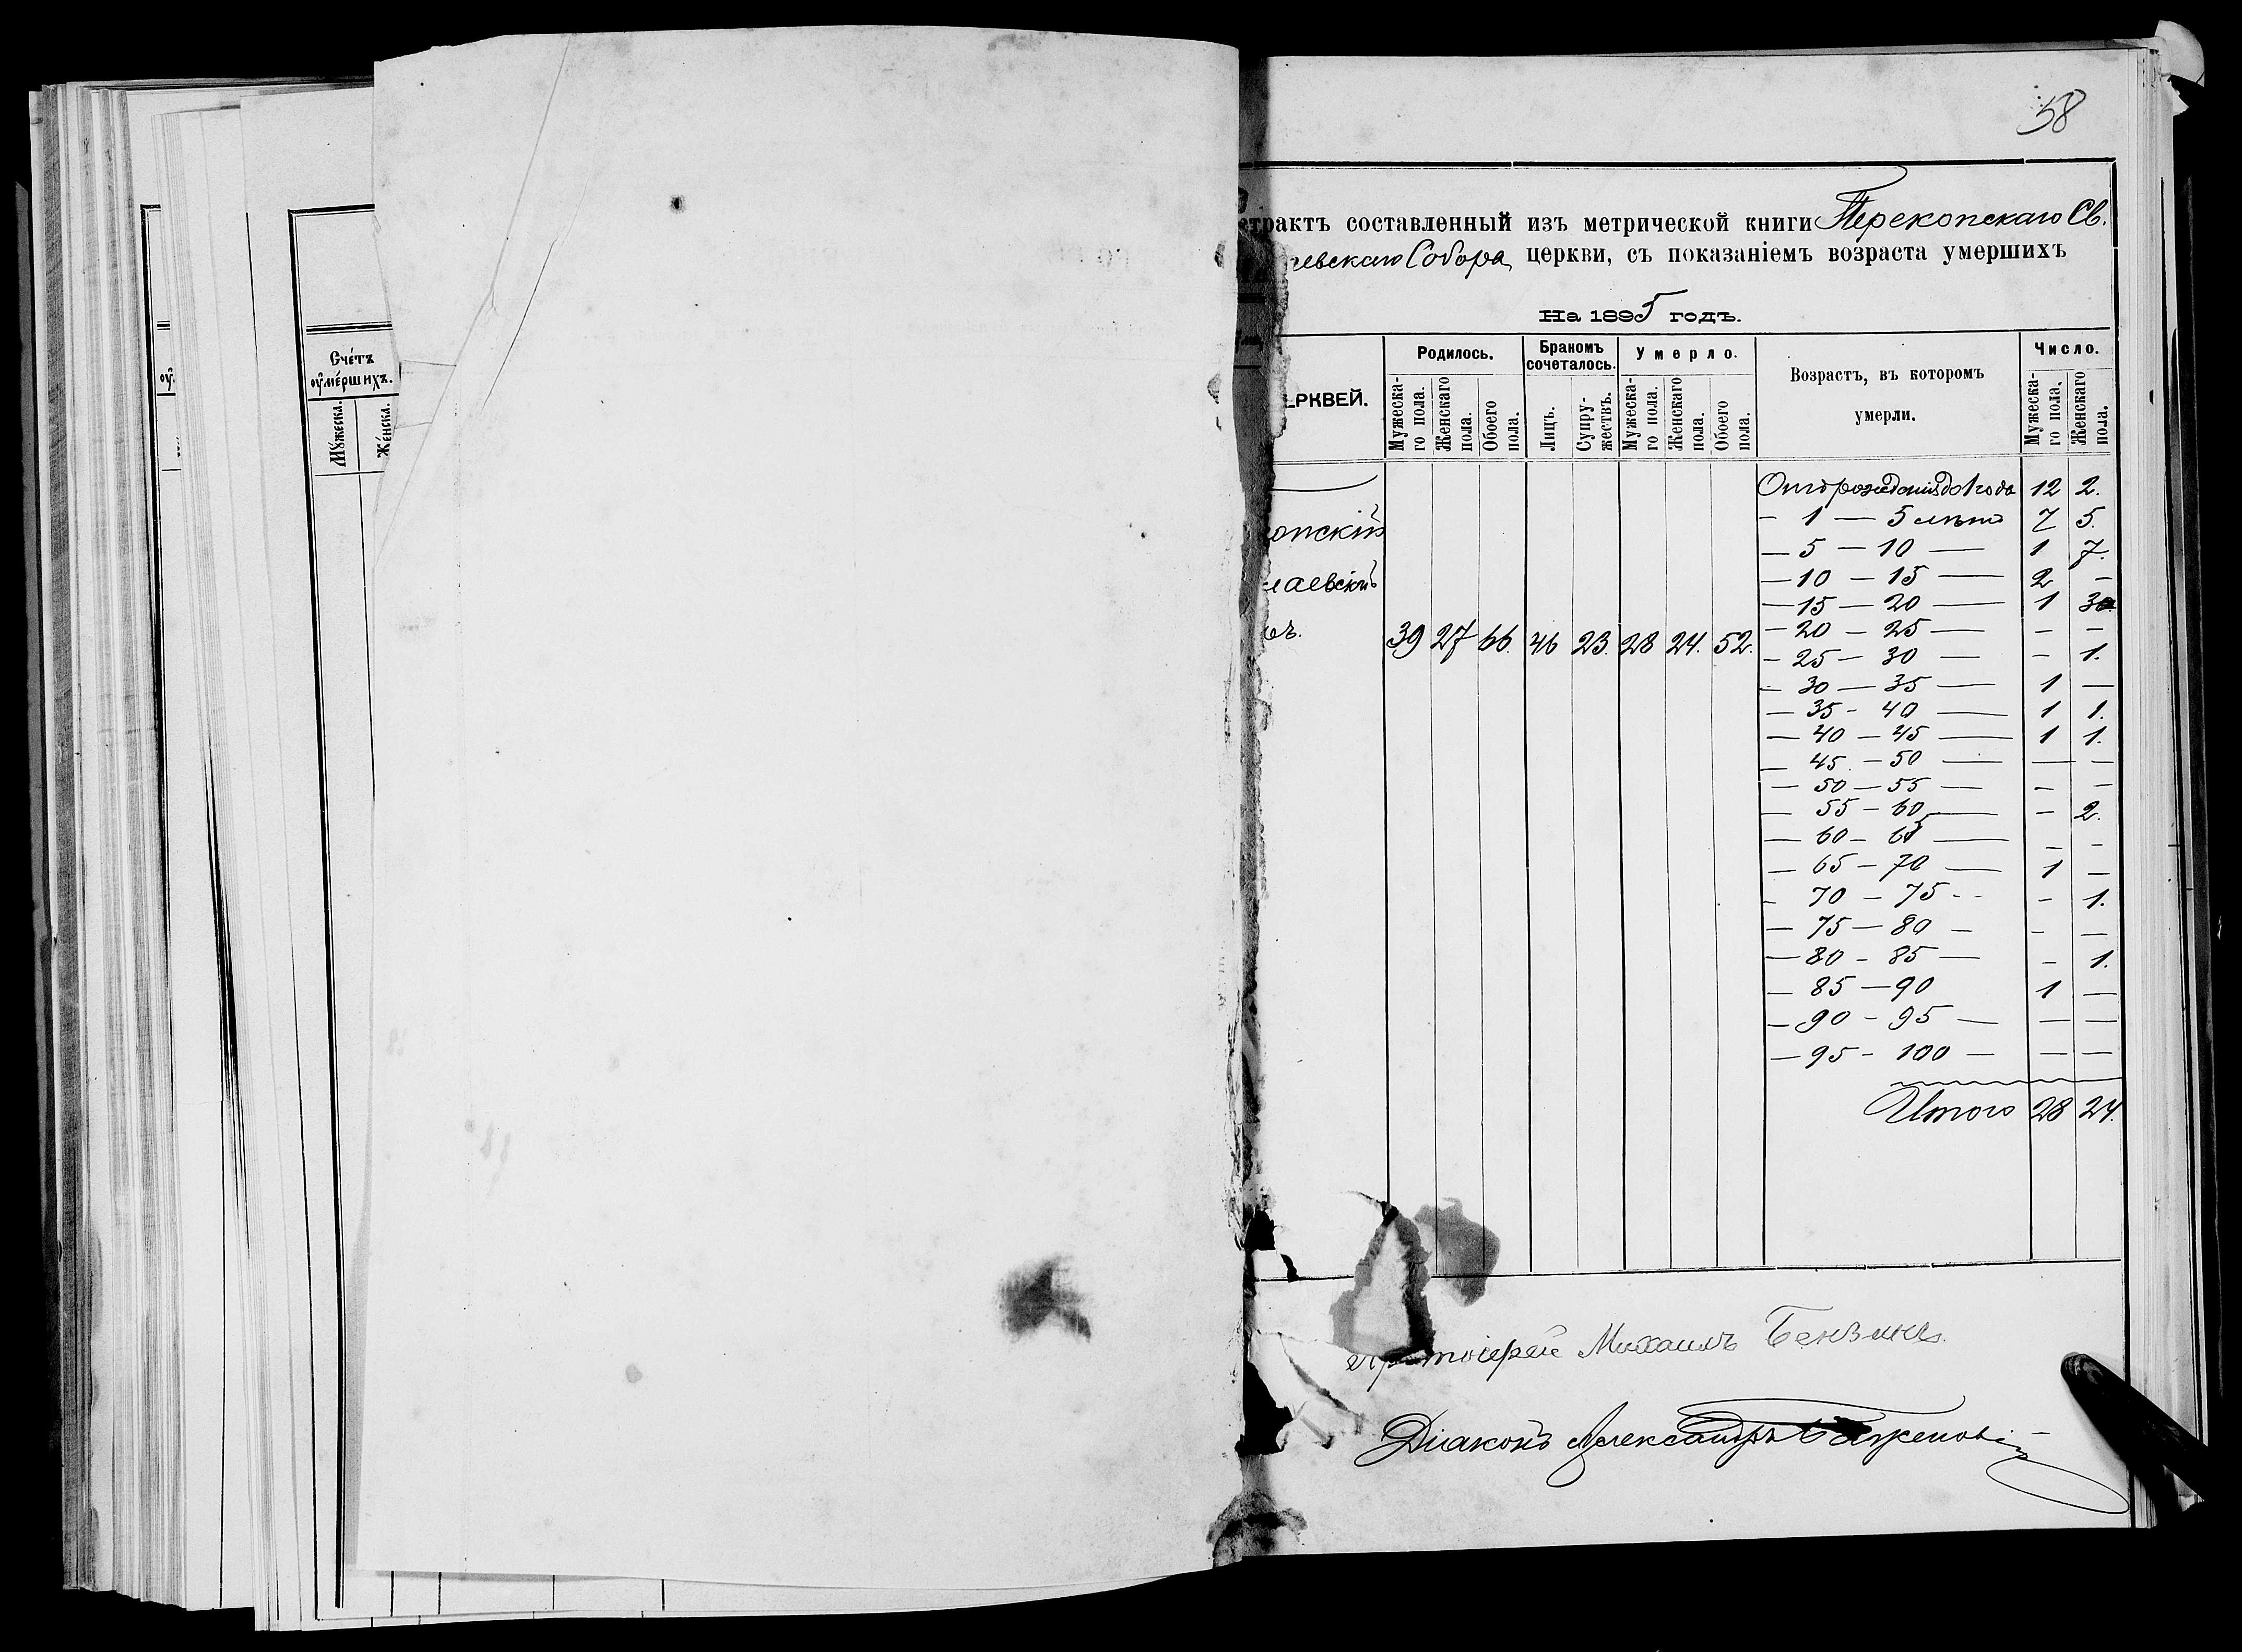 58
трактъ составленный изъ метрической книги Перекопскаго Св.
аевскаго Собора церкви, съ показаніемъ возраста умершихъ
На 1895 годъ.
Счетъ
ѹмершихъ.
Мѹжеска.
Женска.
ЕРКВЕЙ.
Родилось.
Бракомъ сочеталось.
Умерло.
Возрастъ, въ которомъ умерли.
Число.
Мужеска-го пола.
Женскаго пола.
Обоего пола.
Лицъ.
Супру-жествъ.
Мужеска-го пола.
Женскаго пола.
Обоего пола.
Мужеска-го пола.
Женскаго пола.
Отъ рожденія до 1 года 12 2.
— 1 — 5 летъ 7 5.
опскій
— 5 — 10 — 1 7.
— 10 — 15 — 2 —
лаевскій
— 15 — 20 — 1 3
— 20 — 25 — — —
ръ. 39 27 66. 46 23. 28 24. 52.
— 25 — 30 — — 1.
— 30 — 35 — 1 —
— 35 - 40 — 1 1.
— 40 — 45 — 1 1.
— 45 — 50 — — —
— 50 — 55 — — —
— 55 — 60 — — 2.
— 60 — 65 — — —
— 65 — 70 — 1 —
— 70 — 75 - - — 1.
— 75 — 80 — — —
— 80 - 85 — — 1.
— 85 — 90 1 —
— 90 - 95 — — —
— 95 - 100 — — —
Итого 28 24.
Протоіерей Михаилъ
Діаконъ Александръ